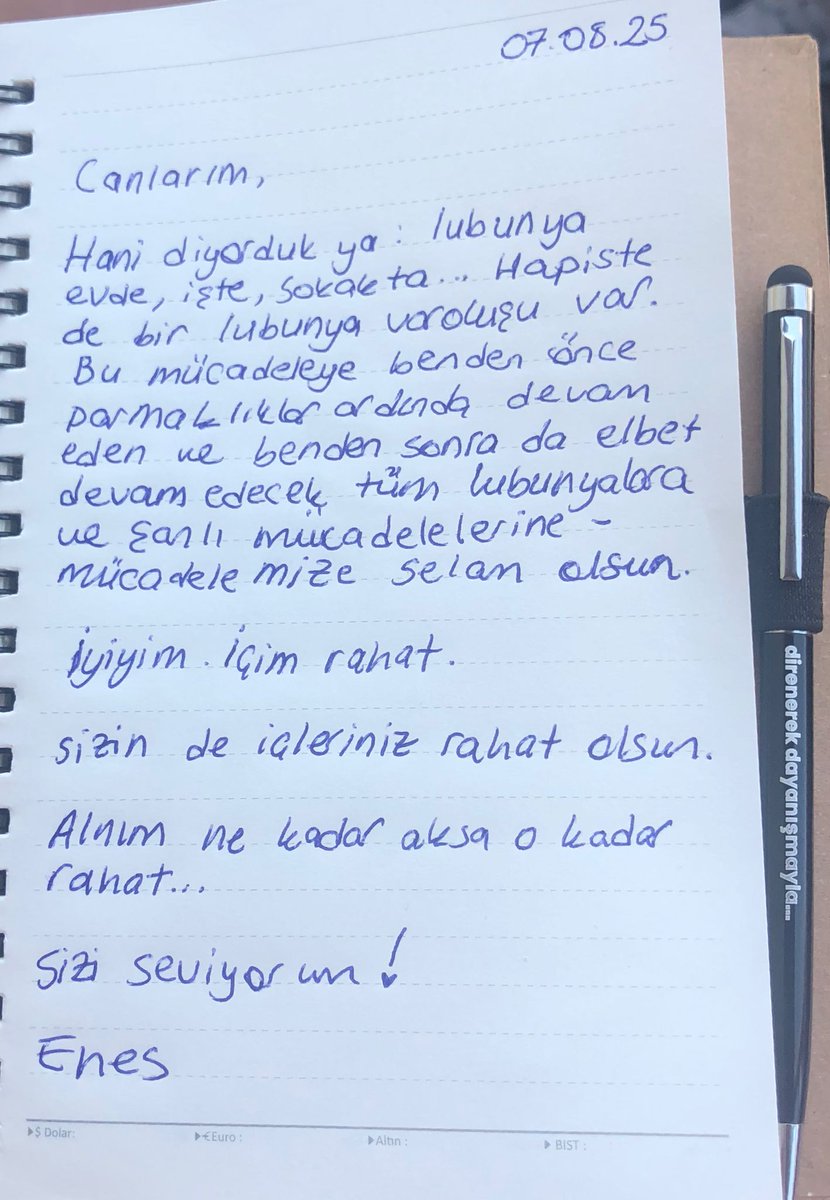 07.08.25
Canlarım,
Hani diyorduk ya: lubunya
evde, işte, sokakta... Hapiste
de bir lubunya varoluşu var.
Bu mücadeleye benden önce
parmaklıklar ardında devam
eden ve benden sonra da elbet
devam edecek tüm lubunyalara
ve şanlı mücadelelerine -
mücadelemize selam olsun.
İyiyim. İçim rahat.
Sizin de içleriniz rahat olsun.
Alnım ne kadar aksa o kadar
rahat...
Sizi seviyorum!
Enes
$ Dolar:
€ Euro :
Altın :
BIST :
direnerek dayanışmayla...